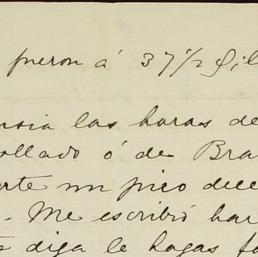 fueron á 37½ Gil
las horas de
ollado ó de Bra
rte un pico dece
. Me escribió har
diga le hagas fa